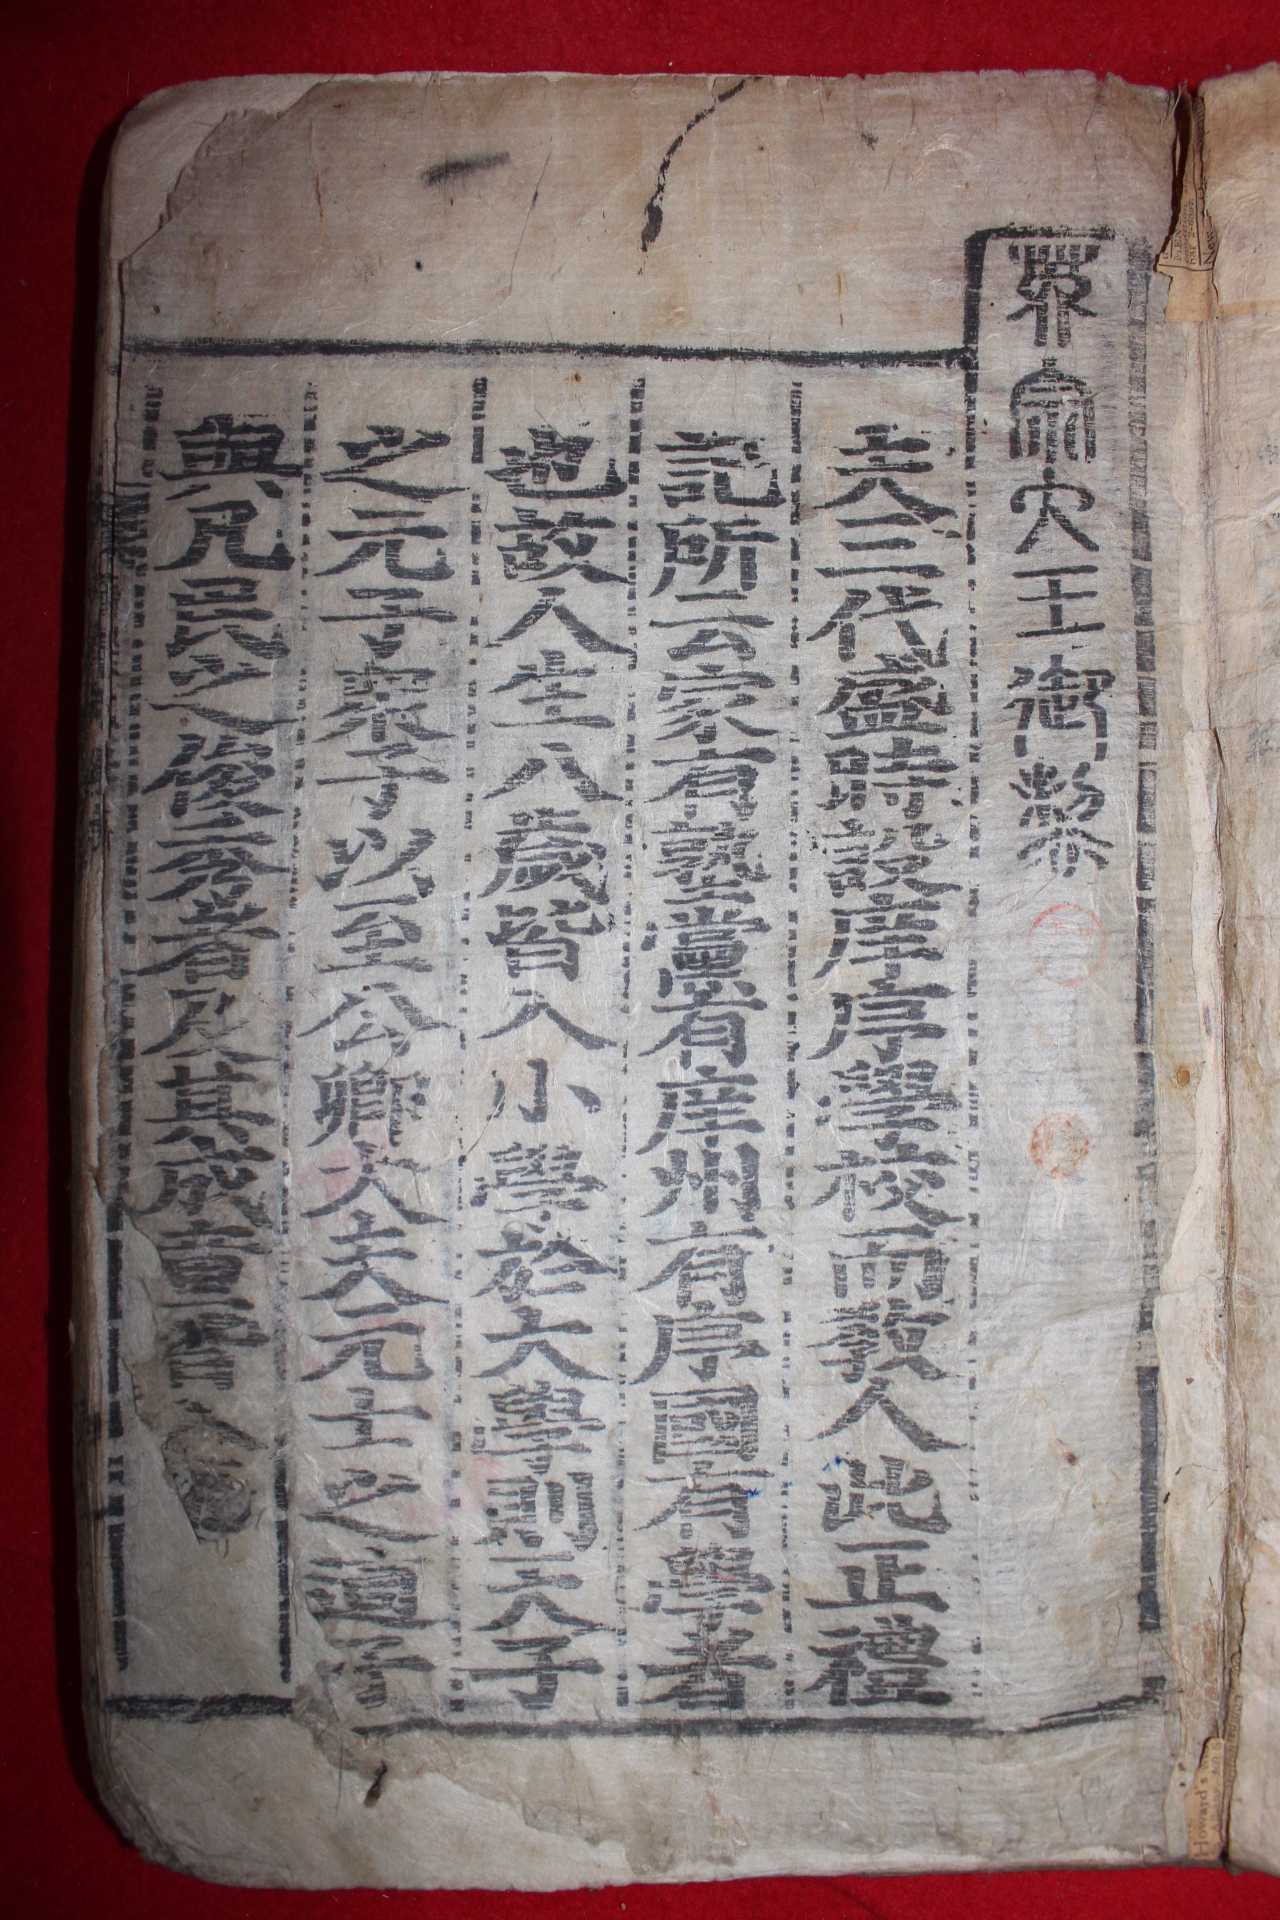 英宗大王御製
夫三代盛時設庠序學校而敎人此正禮
記所云家有塾黨有庠州有序國有學者
也故人生八歲皆入小學於大學則天子
之元子衆子以至公卿大夫元士之適子
與凡民之俊秀者及其成童皆入
New
Howard's